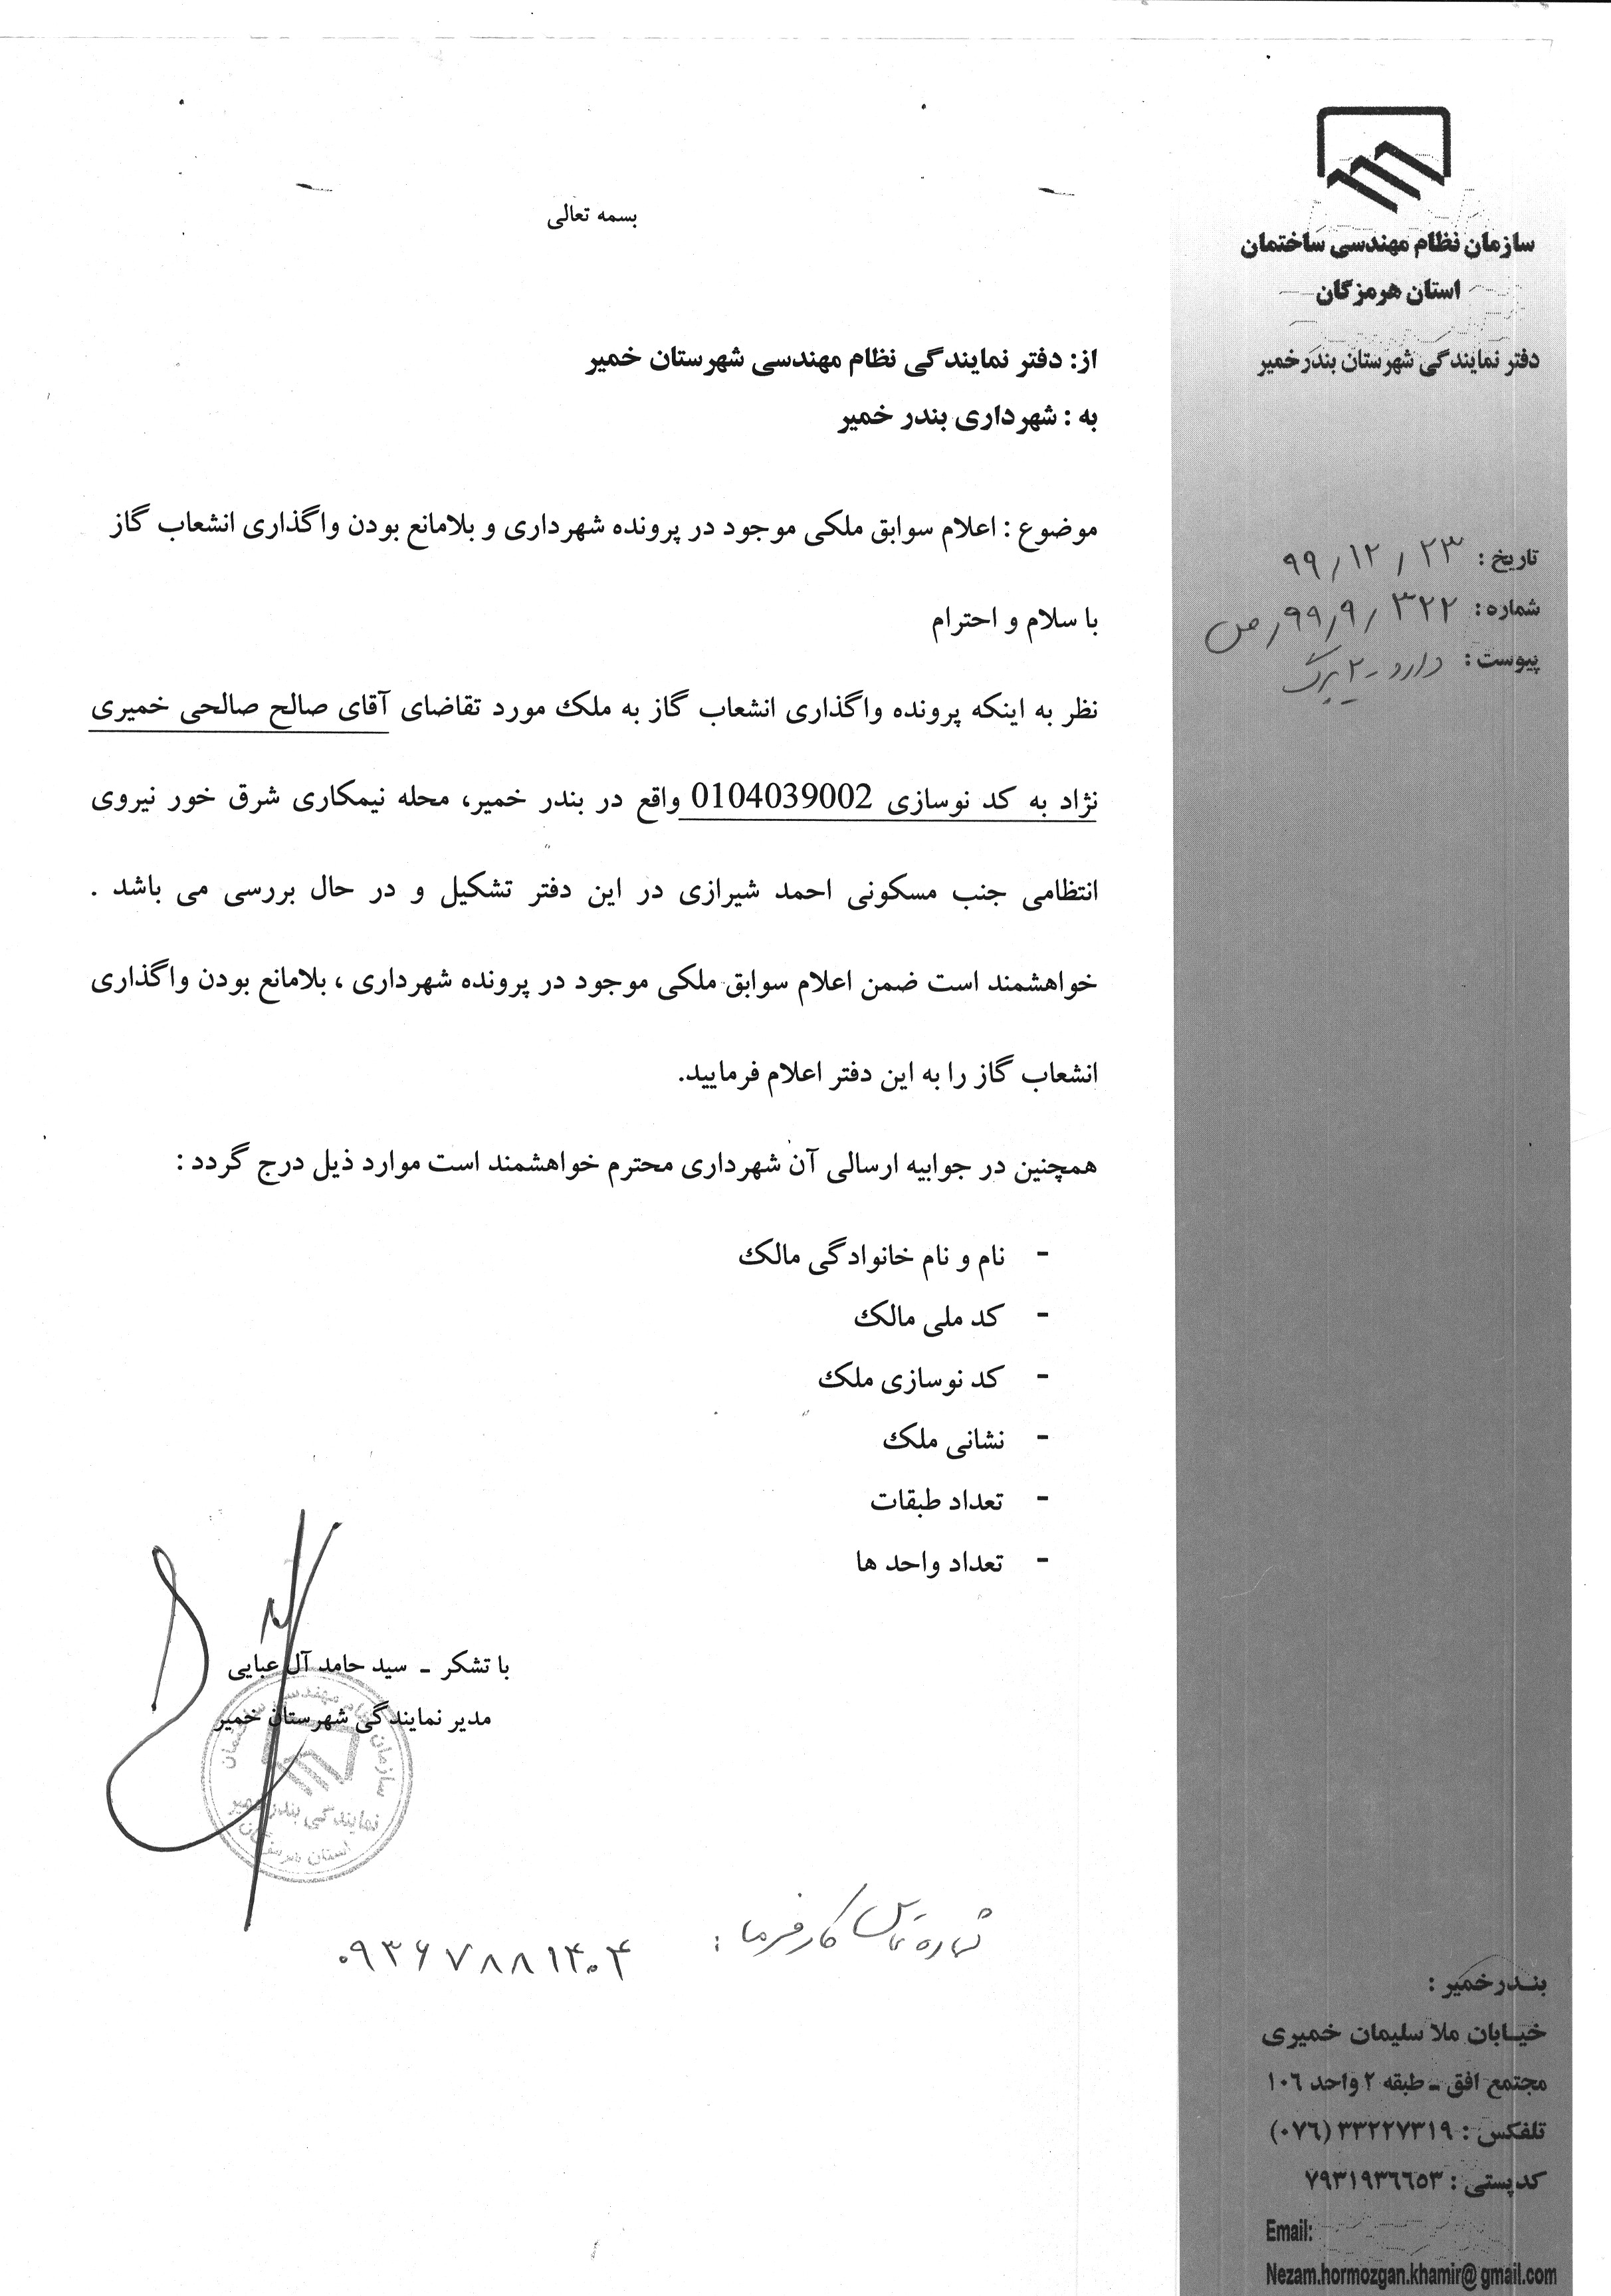 سازمان نظام مهندسی ساختمان
استان هرمزگان
دفتر نمایندگی شهرستان بندرخمیر
تاریخ : ۹۹/۱۲/۲۳
شماره : ۳۲۲/۹/۹۹/ص
پیوست : دارد -۲ برگ
بسمه تعالی
از: دفتر نمایندگی نظام مهندسی شهرستان خمیر
به : شهرداری بندر خمیر
موضوع : اعلام سوابق ملکی موجود در پرونده شهرداری و بلامانع بودن واگذاری انشعاب گاز
با سلام و احترام
نظر به اینکه پرونده واگذاری انشعاب گاز به ملک مورد تقاضای آقای صالح صالحی خمیری
نژاد به کد نوسازی 0104039002 واقع در بندر خمیر، محله نیمکاری شرق خور نیروی
انتظامی جنب مسکونی احمد شیرازی در این دفتر تشکیل و در حال بررسی می باشد .
خواهشمند است ضمن اعلام سوابق ملکی موجود در پرونده شهرداری ، بلامانع بودن واگذاری
انشعاب گاز را به این دفتر اعلام فرمایید.
همچنین در جوابیه ارسالی آن شهرداری محترم خواهشمند است موارد ذیل درج گردد :
- نام و نام خانوادگی مالک
- کد ملی مالک
- کد نوسازی ملک
- نشانی ملک
- تعداد طبقات
- تعداد واحد ها
با تشکر ـ سید حامد آل عبایی
مدیر نمایندگی شهرستان خمیر
سازمان نظام مهندسی ساختمان
نمایندگی بندر خمیر
استان هرمزگان
شماره تماس کارفرما : ۰۹۳۶۷۸۸۱۴۰۴
بندرخمیر :
خیابان ملا سلیمان خمیری
مجتمع افق ـ طبقه ۲ واحد ۱۰۶
تلفکس : ۳۳۲۲۷۳۱۹ (۰۷۶)
کدپستی : ۷۹۳۱۹۳۶۶۵۳
Email:
Nezam.hormozgan.khamir@gmail.com